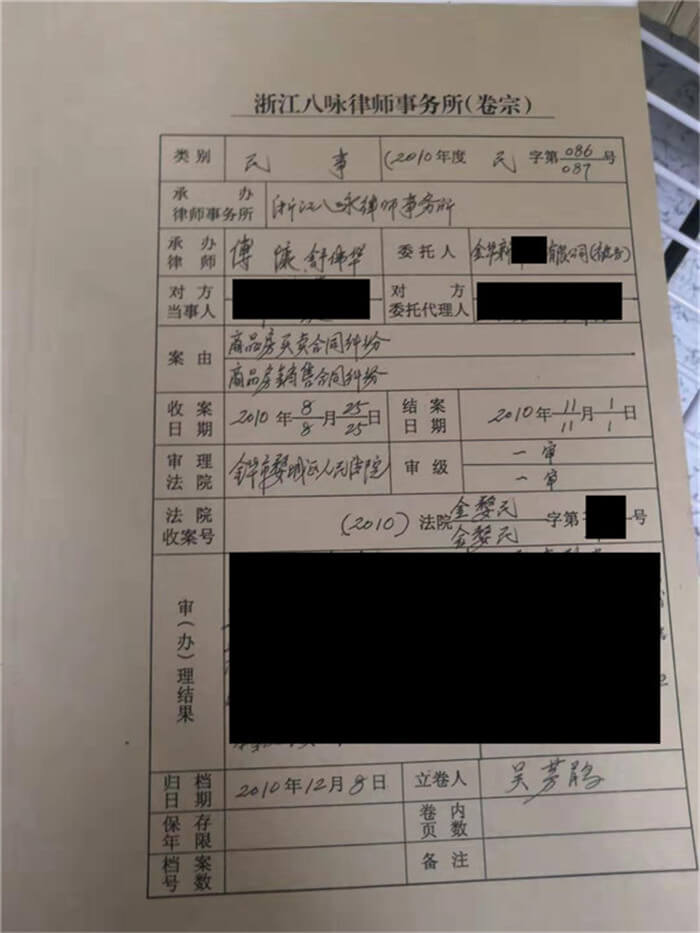 浙江八咏律师事务所(卷宗)
类别 民事 (2010年度 民 字第 086 号
087
承办律师事务所 浙江八咏律师事务所
承办律师 傅 舒伟华 委托人 金华新 有限公司
对方当事人 对方委托代理人
案由 商品房买卖合同纠纷
商品房销售合同纠纷
收案日期 2010年 8 月 25 日 结案日期 2010年 11 月 1 日
8 25 11 1
审理法院 金华市婺城区人民法院 审级 一审
一审
法院收案号 (2010) 法院 金婺民 字第 号
金婺民
审(办)理结果
归档日期 2010年12月8日 立卷人 吴
保存年限 卷内页数
档案号数 备注